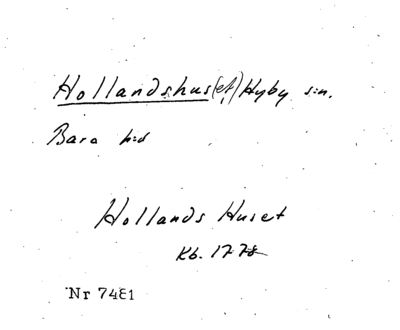 Hollandshus(et) Hyby s:n.
Bara h:d
Hollands Huset
Kb. 1778
Nr 7481